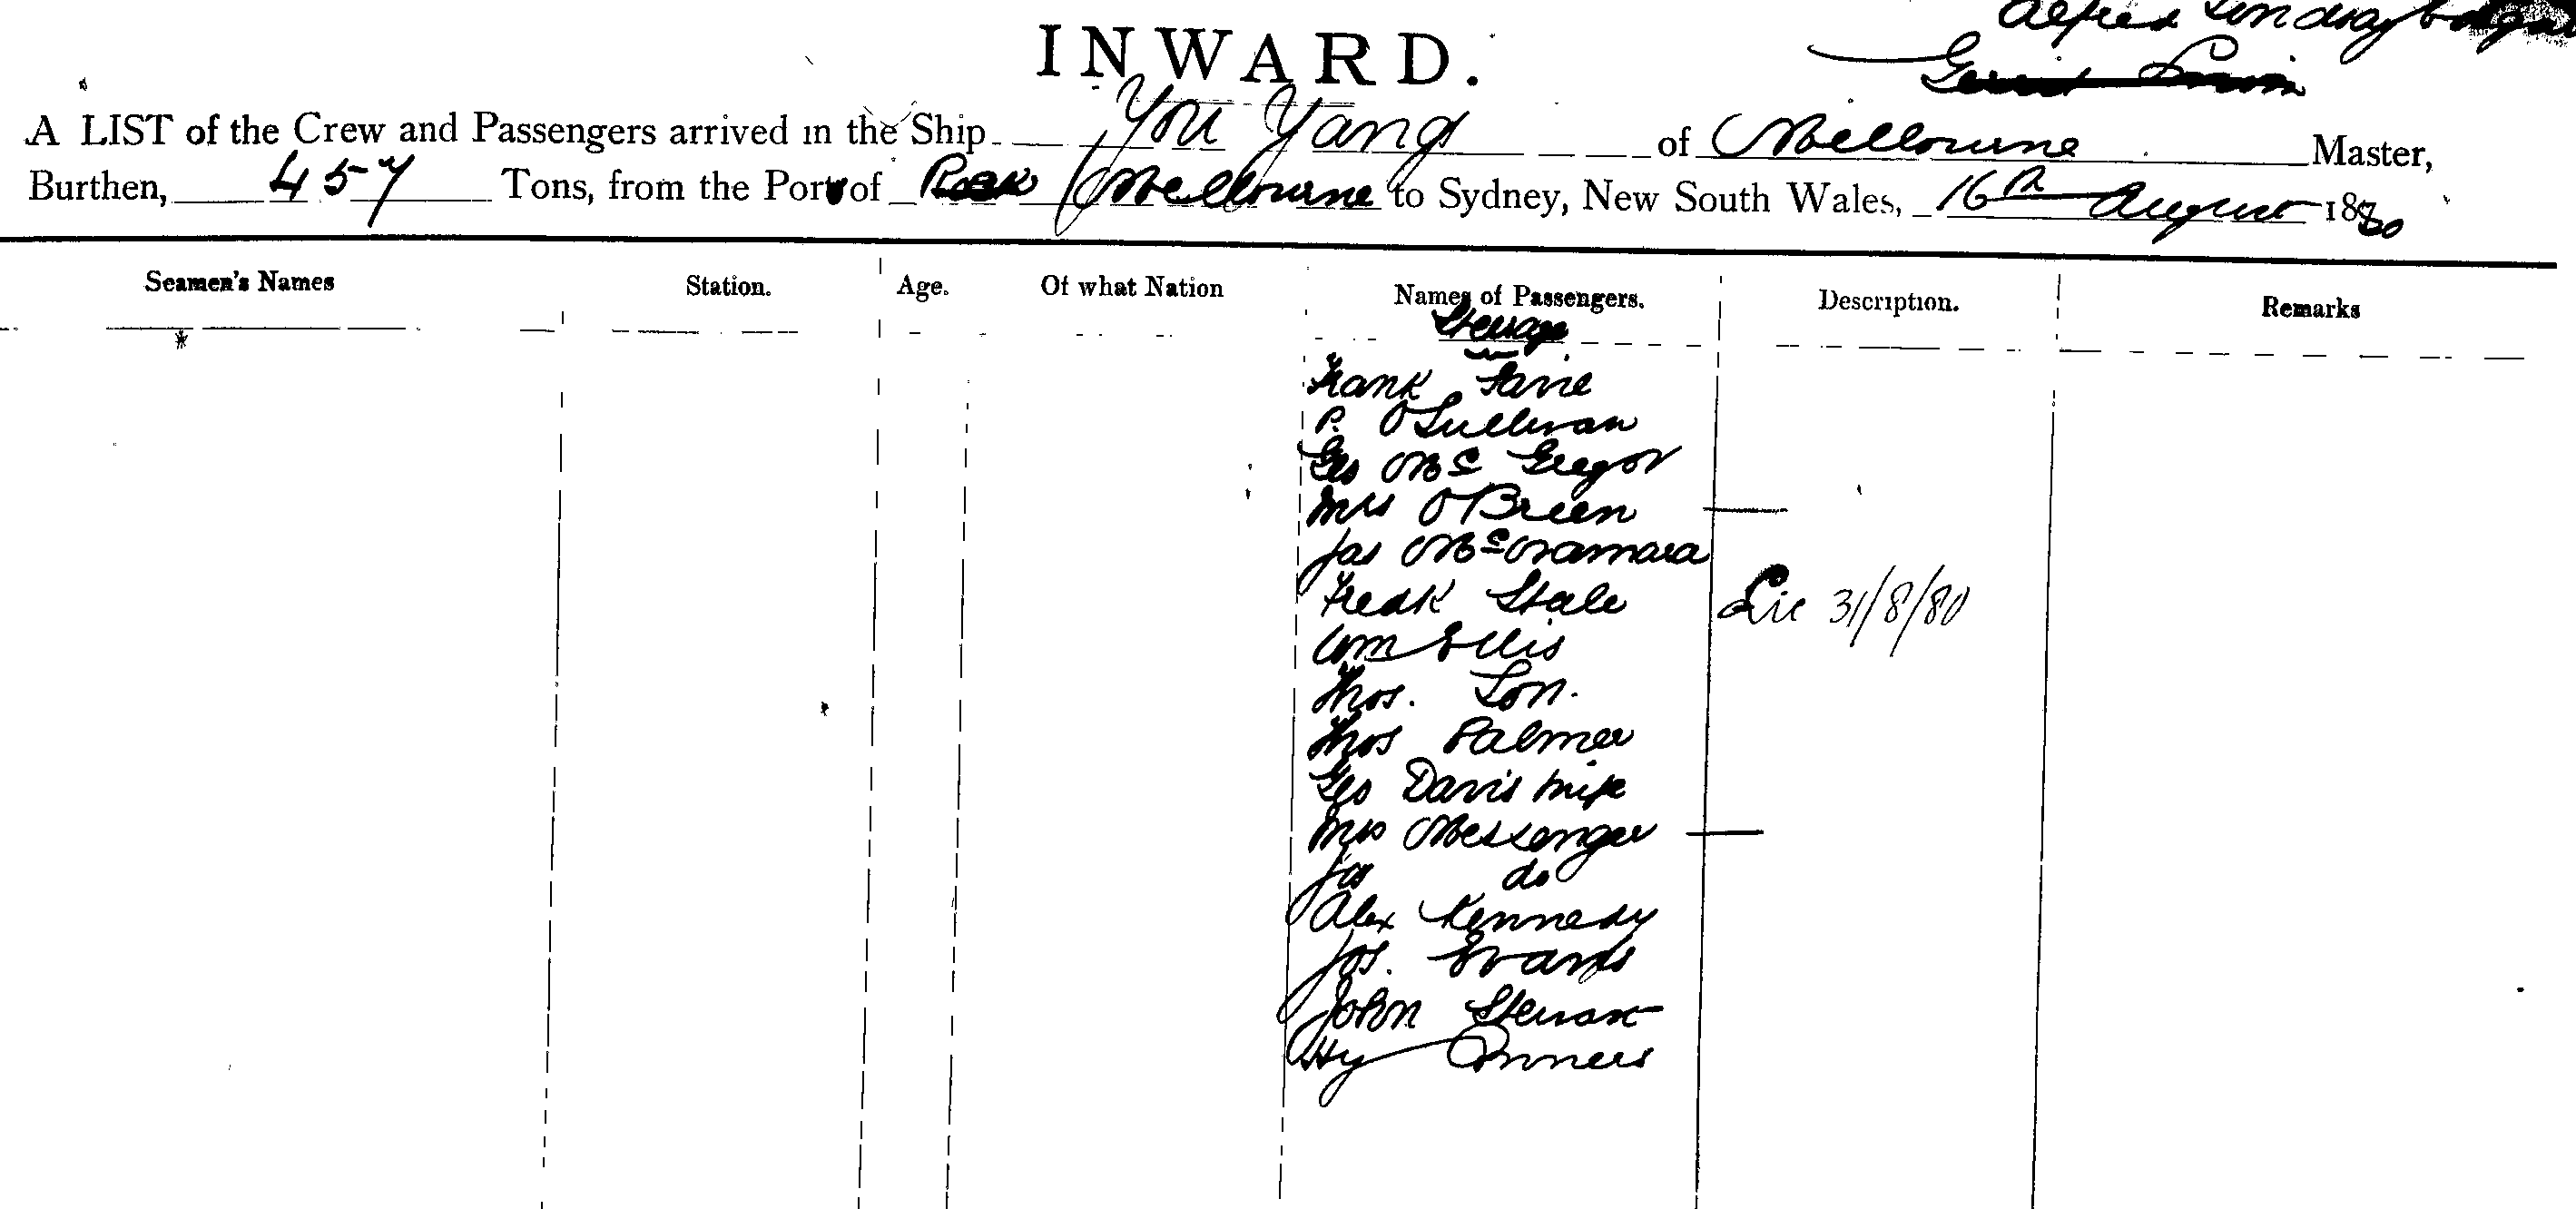 INWARD.
Alfred Lindsay
A LIST of the Crew and Passengers arrived in the Ship You Yangs of Melbourne Master,
Burthen, 457 Tons, from the Port of Melbourne to Sydney, New South Wales, 16th August 1880
Seamen's Names Station. Age. Of what Nation Names of Passengers. Description. Remarks
Steerage
Frank
P. O'Sullivan
Geo McGregor
Mrs O'Brien
Jas McNamara
Fredk Stale Lic 31/8/80
Wm Ellis
Thos. Lon.
Thos Palmer
Geo Davis wife
Mrs Messenger
Jas do
Alex Kennedy
Jos. Evans
John Stewart
Hy Conners